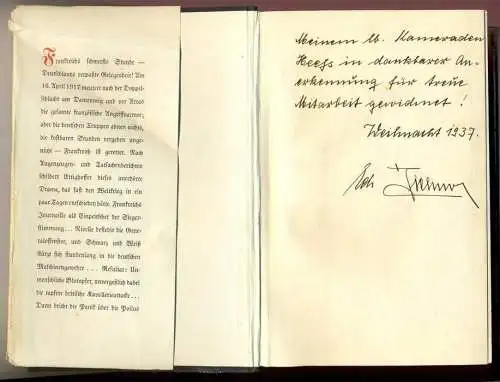 Frankreichs schwerste Stunde —
Deutschlands verpaßte Gelegenheit! Am
16. April 1917 meutert nach der Doppel-
schlacht am Damenweg und der Arras
die gesamte französische Angriffsarmee;
aber die deutschen Truppen ahnen nichts,
die kostbaren Stunden vergehen unge-
nützt — Frankreich ist gerettet. Nach
Augenzeugen- und Tatsachenberichten
schildert Ettighoffer dieses unerhörte
Drama, das fast den Weltkrieg in ein
paar Tagen entschieden hätte. Frankreichs
Journaille als Einpeitscher der Sieger-
stimmung... Nivelle bestellt die Gene-
raloffensive, und Schwarz und Weiß
stürzt sich stundenlang in die deutschen
Maschinengewehre... Resultat: Un-
menschliche Blutopfer, unentwegt dabei
die tapfern britische Kavallerieattacke...
Dann bricht die Panik über die Poilus
Meinem lb. Kameraden
in dankbarer An-
erkennung für treue
Mitarbeit gewidmet!
Weihnacht 1937.